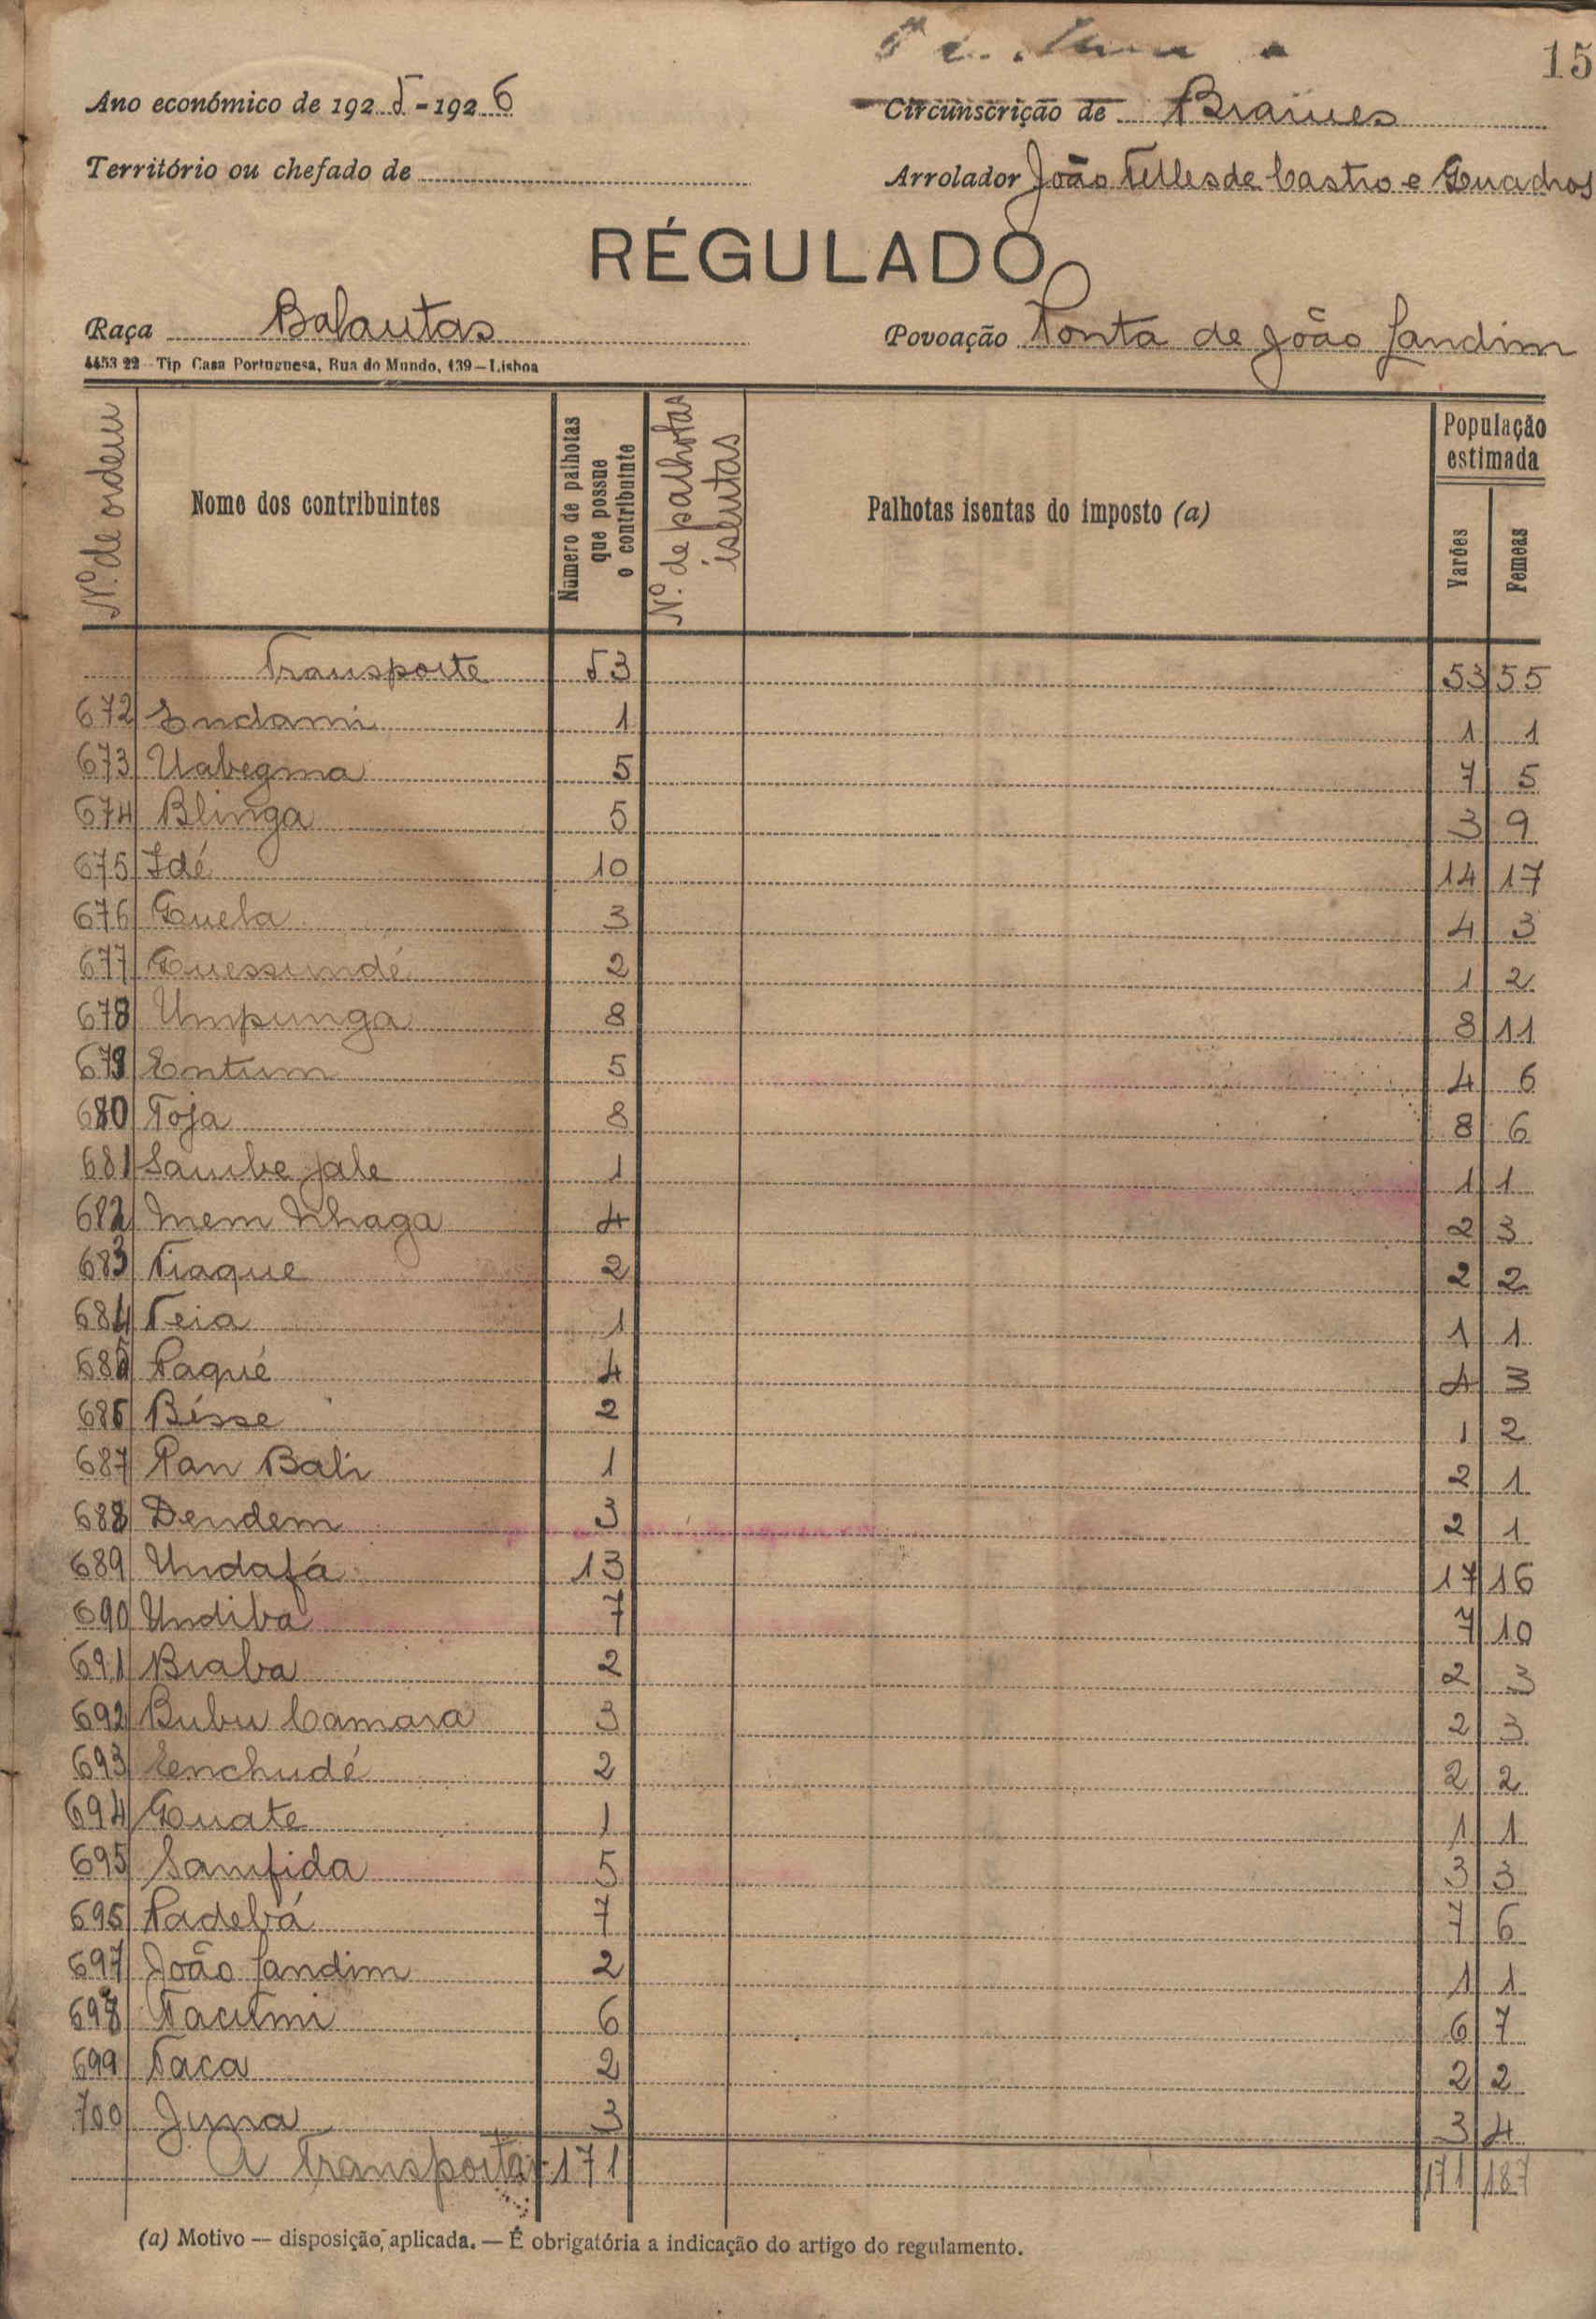 15
Ano económico de 1925-1926
Circunscrição de Brames
Território ou chefado de
Arrolador João Telles de Castro e Quadros
RÉGULADO
Raça Balantas
Povoação Ponta de João Landim
4453 22 - Tip Casa Portuguesa, Rua do Mundo, 139-Lisboa
Nº. de ordem
Nome dos contribuintes
Número de palhotas que possue o contribuinte
Nº. de palhotas isentas
Palhotas isentas do imposto (a)
População estimada
Varões
Femeas
Transporte 53 53 55
672 Endami 1 1 1
673 Uabegma 5 7 5
674 Blinga 5 3 9
675 Idé 10 14 17
676 Quela 3 4 3
677 Quessundé 2 1 2
678 Umpunga 8 8 11
679 Entum 5 4 6
680 Toja 8 8 6
681 Sambe jale 1 1 1
682 Inem Nhaga 4 2 3
683 Tiaque 2 2 2
684 Teia 1 1 1
685 Paqué 4 4 3
686 Bisse 2 1 2
687 Pan Bali 1 2 1
688 Dendem 3 2 1
689 Undafá 13 17 16
690 Undiba 7 7 10
691 Braba 2 2 3
692 Bubu Camara 3 2 3
693 Enchudé 2 2 2
694 Quate 1 1 1
695 Samfida 5 3 3
696 Padebá 7 7 6
697 João Landim 2 1 1
698 Tacumi 6 6 7
699 Taca 2 2 2
700 Juna 3 3 4
A Transportar 171 171 187
(a) Motivo — disposição, aplicada. — É obrigatória a indicação do artigo do regulamento.